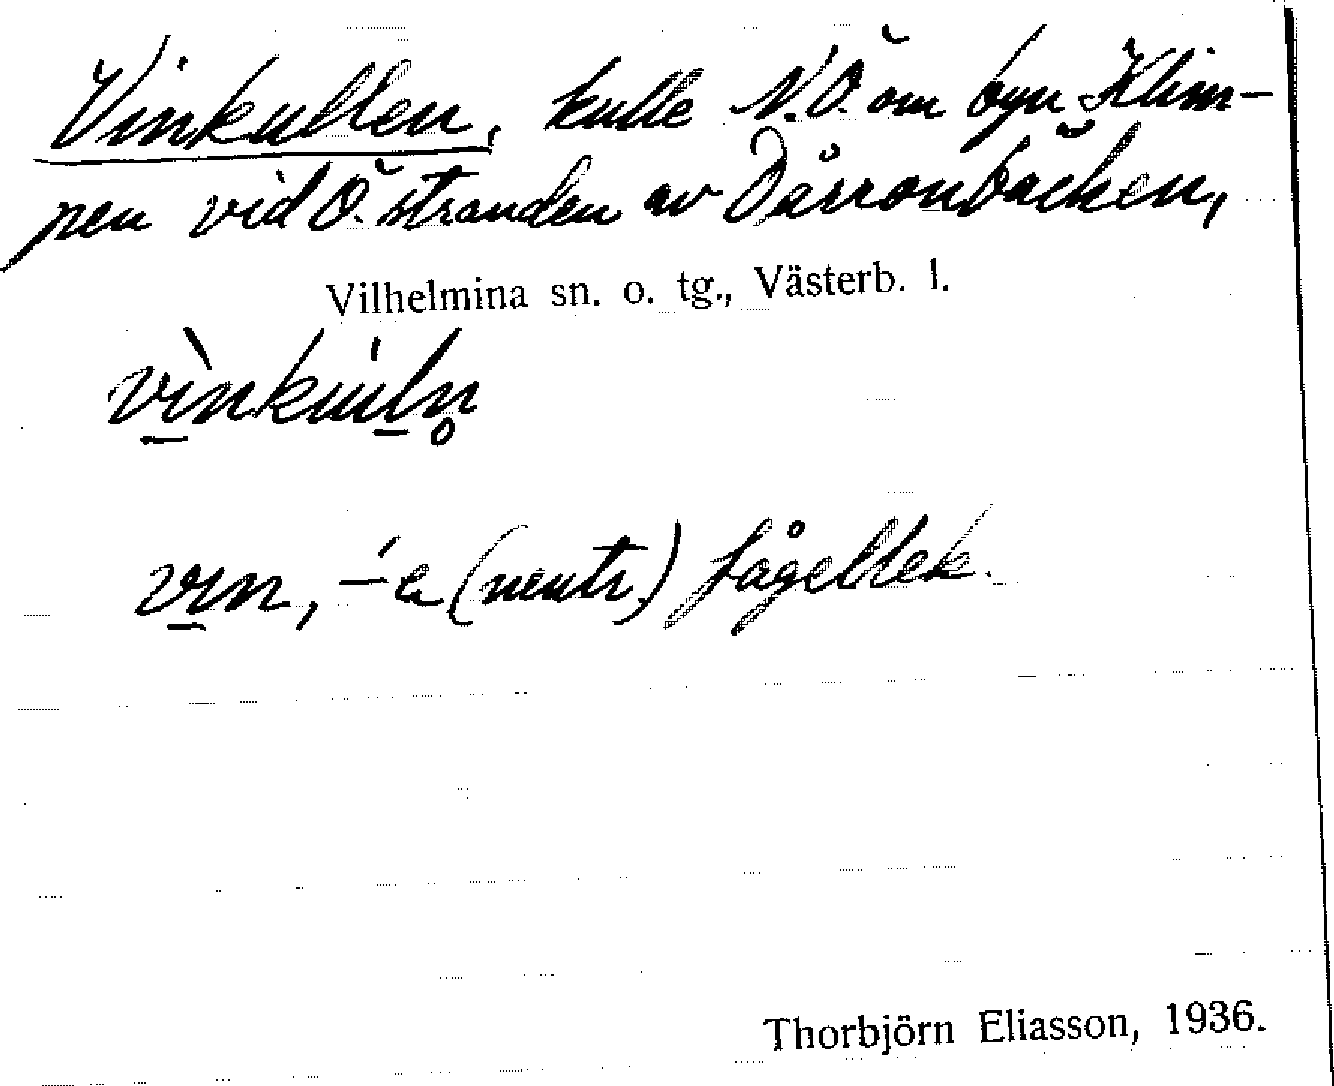 Vinkullen, kulle N.Ö. om byn Klim-
pen vid Ö. stranden av Dårronbäcken,
Vilhelmina sn. o. tg., Västerb. l.
vìnkuíln̥
vın, -́e (neutr.) fågellek.
Thorbjörn Eliasson, 1936.